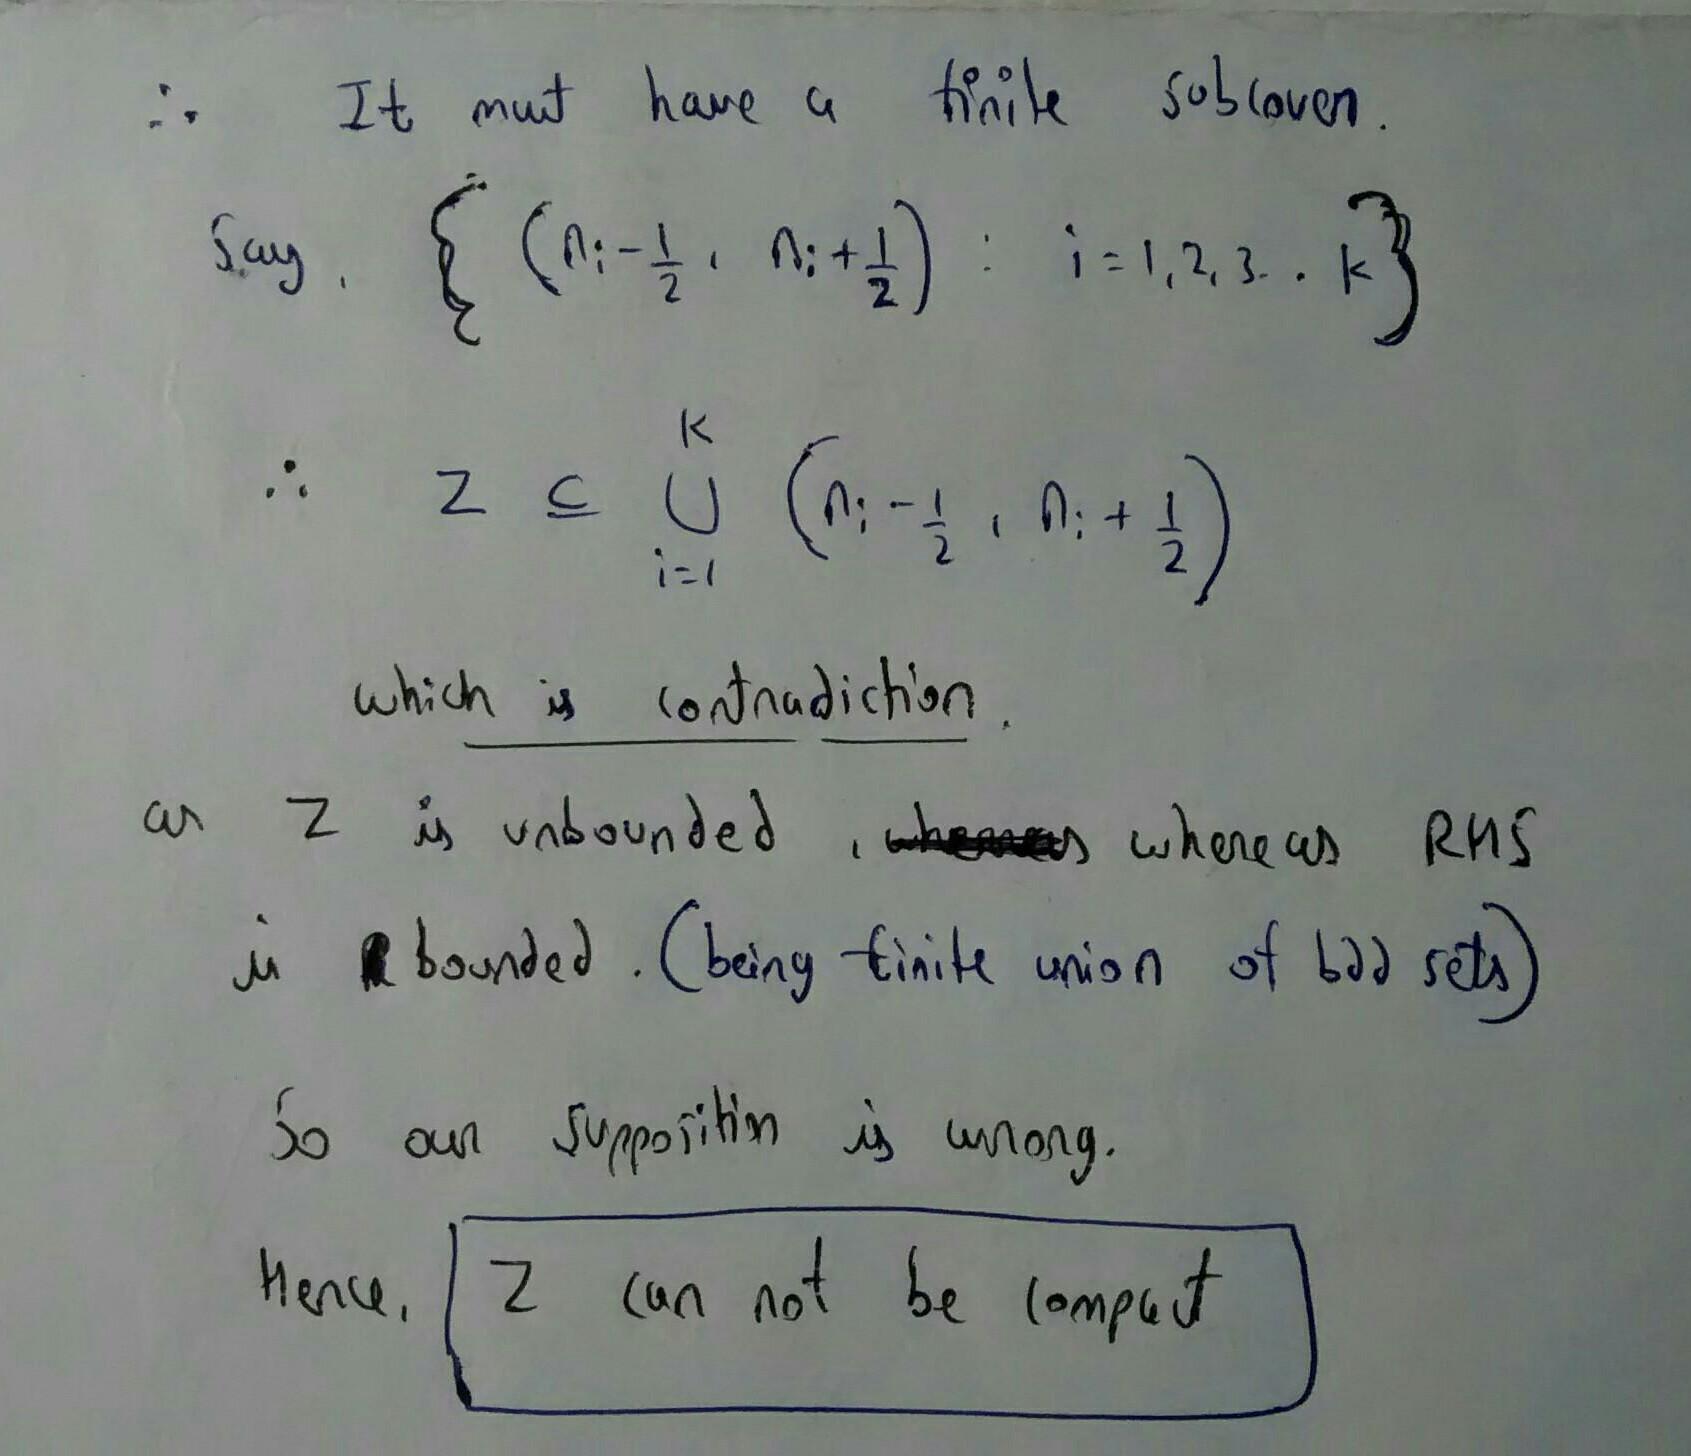 ∴ It must have a finite subcover.
Say, { (nᵢ - 1/2, nᵢ + 1/2) : i = 1, 2, 3 . . k }
∴ Z ⊆ ⋃_{i=1}^{K} (nᵢ - 1/2, nᵢ + 1/2)
which is contradiction.
as Z is unbounded, whereas RHS
is bounded. (being finite union of bdd sets)
So our supposition is wrong.
Hence, Z can not be compact